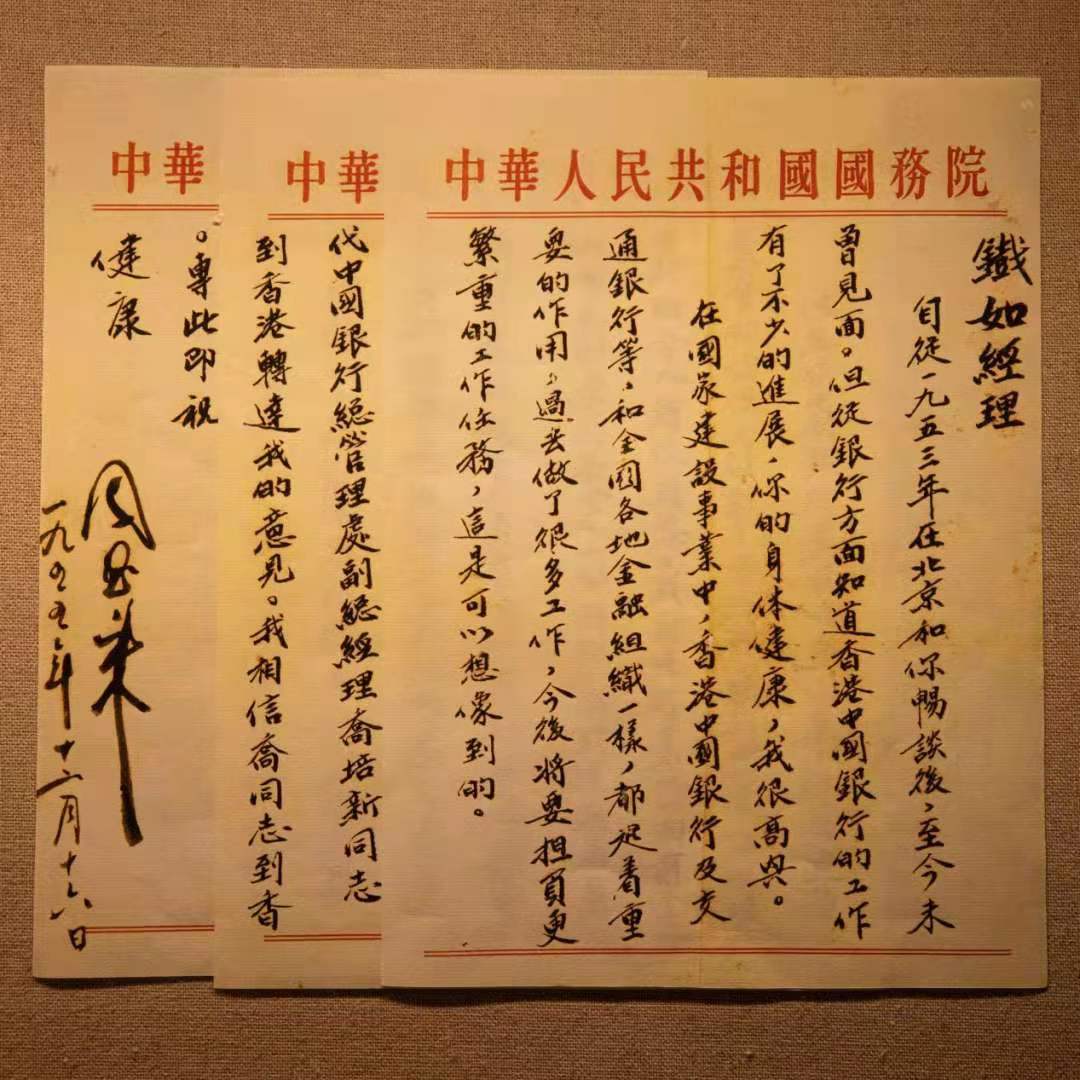 中華人民共和國國務院
鐵如經理
自從一九五三年在北京和你暢談後，至今未
曾見面。但從銀行方面知道香港中國銀行的工作
有了不少的進展，你的身体健康，我很高興。
在國家建設事業中，香港中國銀行及交
通銀行等，和全国各地金融組織一樣，都起着重
要的作用，過去做了很多工作，今後將要担負更
繁重的工作任務，這是可以想像到的。
中華
代中國銀行總管理處副總經理喬培新同志
到香港轉達我的意見。我相信喬同志到香
中華
。專此即祝
健康
周恩来
一九五五年十二月十六日